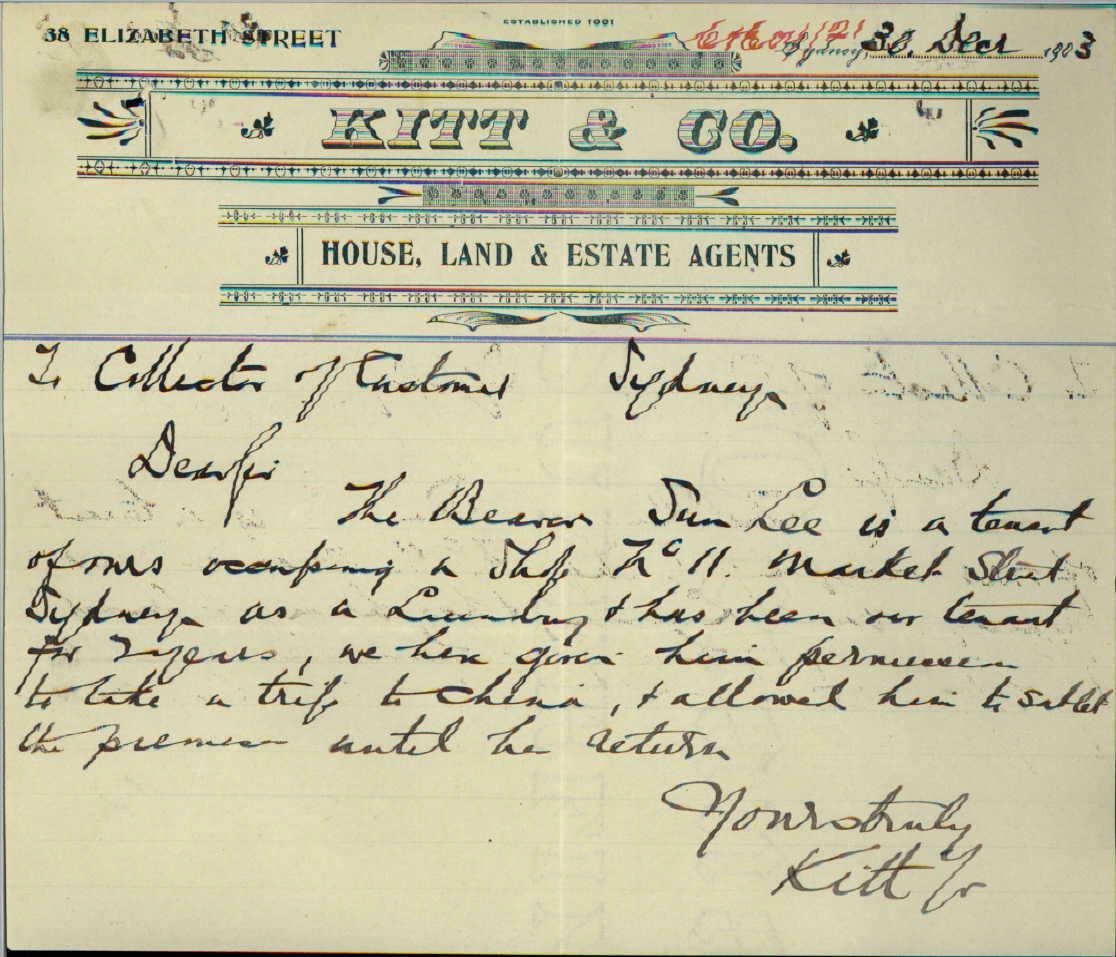 ESTABLISHED 1901
38 ELIZABETH STREET
Sydney, 30. Decr 1903
KITT & CO.
HOUSE, LAND & ESTATE AGENTS
To Collector of Customs Sydney
Dear Sir
The Bearer Sun Lee is a tenant
of ours occupying a Shop No 11. Market Street
Sydney as a Laundry & has been our tenant
for 2 years, we have given him permission
to take a trip to China, & allowed him to sublet
the premises until he return
Yours truly
Kitt